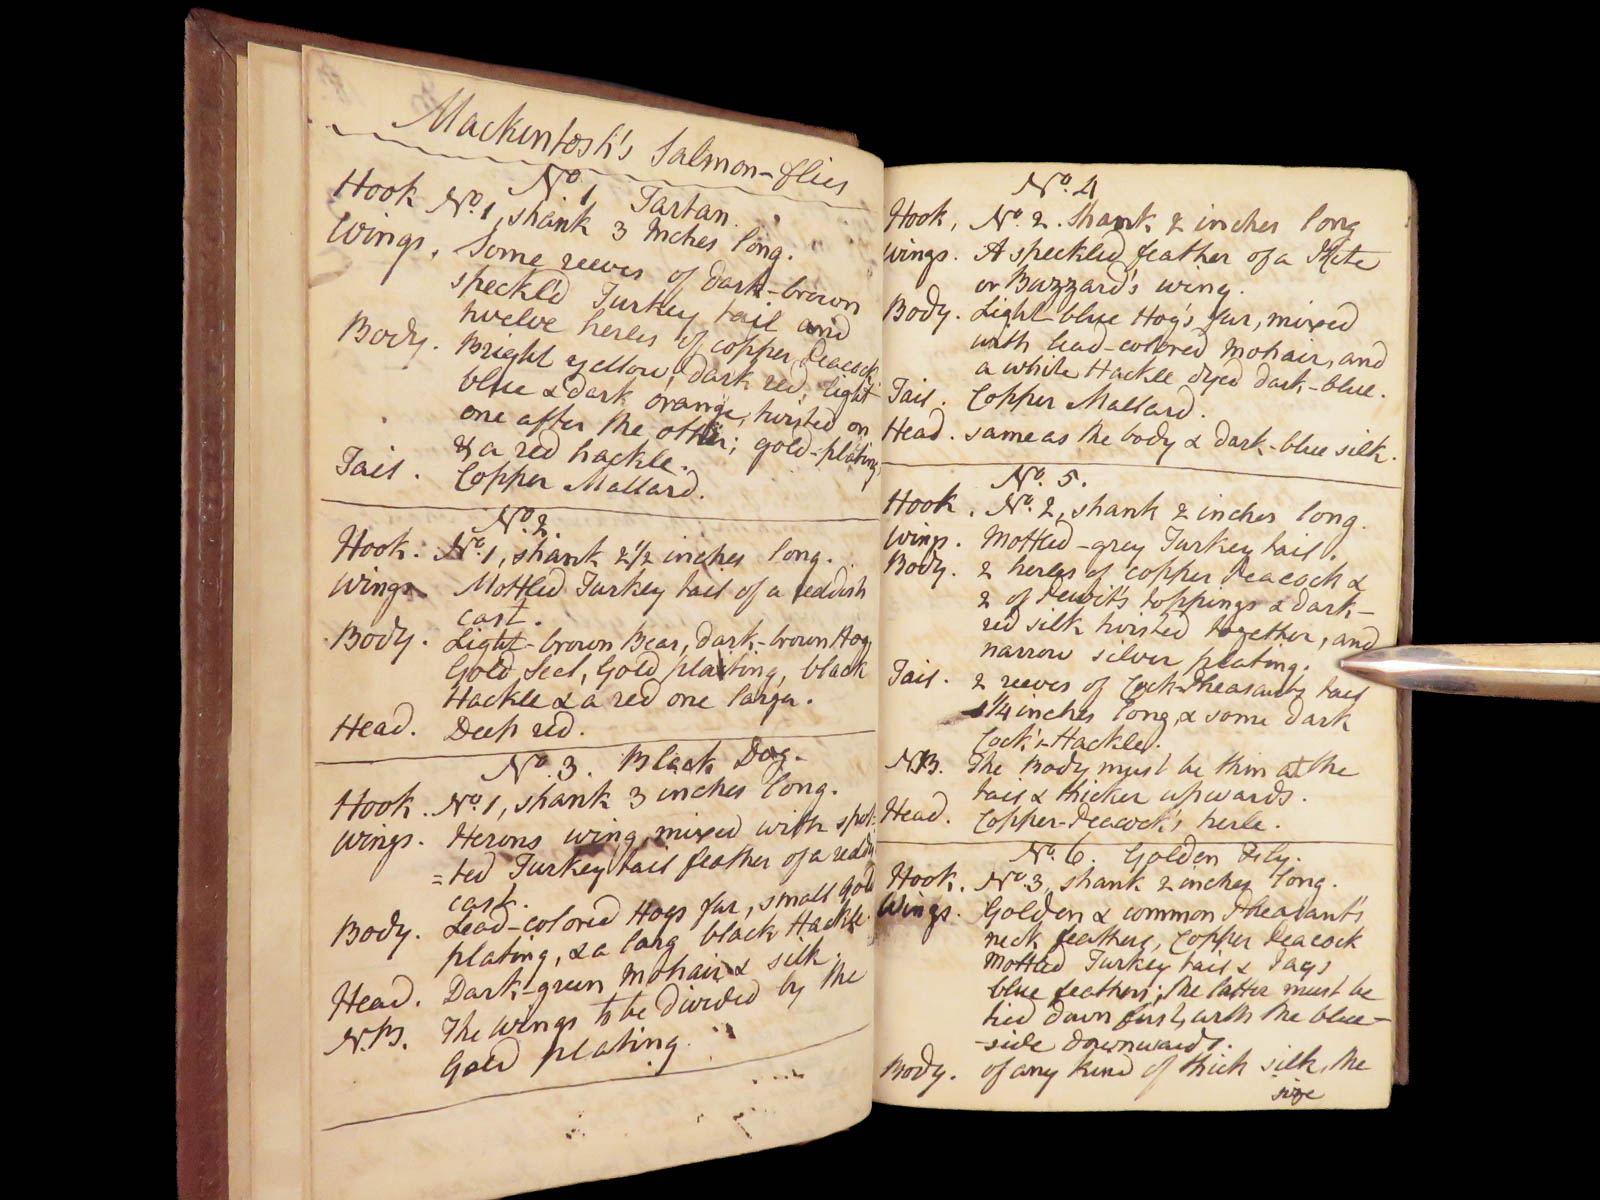 Mackintosh's Salmon-flies
No. 1 Tartan.
Hook No. 1, shank 3 Inches long.
Wings. Some reeves of dark-brown
speckl'd Turkey tail and
twelve herles of copper Peacock
Body. Bright yellow, dark red, light
blue & dark orange, twisted on
one after the other; gold-plating,
& a red hackle.
Tail. Copper Mallard.
No. 2
Hook. No. 1, shank 2 1/2 inches long.
Wings Mottled Turkey tail of a reddish
cast.
Body. Light-brown Bear, dark-brown Hog,
Gold Seal, Gold plaiting, black
Hackle & a red one larger.
Head. Deep red.
No. 3. Black Dog.
Hook. No. 1, shank 3 inches long.
Wings. Herons wing, mixed with spot-
=ted Turkey tail feather of a reddish
cast.
Body. Lead-colored Hogs fur, small gold
plating, & a larg black Hackle.
Head. Dark-green Mohair & silk.
N.B. The wings to be divided by the
Gold plating.
No. 4
Hook, No. 2. Shank 2 inches long
Wings. A speckled feather of a Kite
or Buzzard's wing.
Body. Light-blue Hog's fur, mixed
with lead-colored Mohair, and
a white Hackle dyed dark-blue.
Tail. Copper Mallard.
Head. same as the body & dark-blue silk.
No. 5.
Hook. No. 2, shank 2 inches long.
Wings. Mottled-grey Turkey tail.
Body. 2 herles of copper Peacock &
2 of Pewit's toppings & dark-
red silk twisted together, and
narrow silver plating.
Tail. 2 reeves of Cock-Pheasants tail
1/4 inches long, & some dark
Cock's-Hackled.
N.B. The Body must be thin at the
tail & thicker upwards.
Head. Copper-Peacock's herle.
No. 6. Golden Fly.
Hook. No. 3, shank 2 inches long.
Wings. Golden & common Pheasant's
neck feathers, Copper Peacock
Mottled Turkey tail & Jays
blue feathers; the latter must be
tied down first, with the blue-
-side downwards.
Body. of any kind of thick silk, the
size